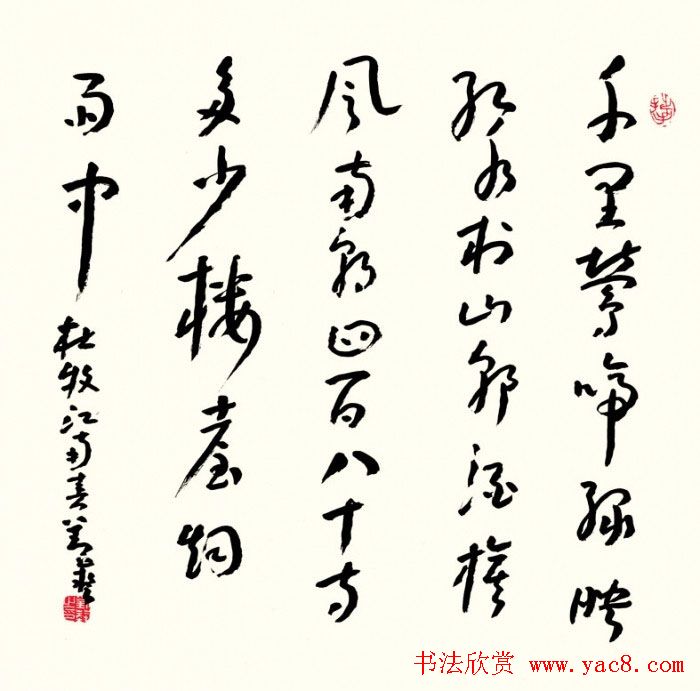 千里鶯啼綠映
紅水村山郭酒旗
風南朝四百八十寺
多少樓臺烟
雨中
杜牧江南春
书法欣赏 www.yac8.com